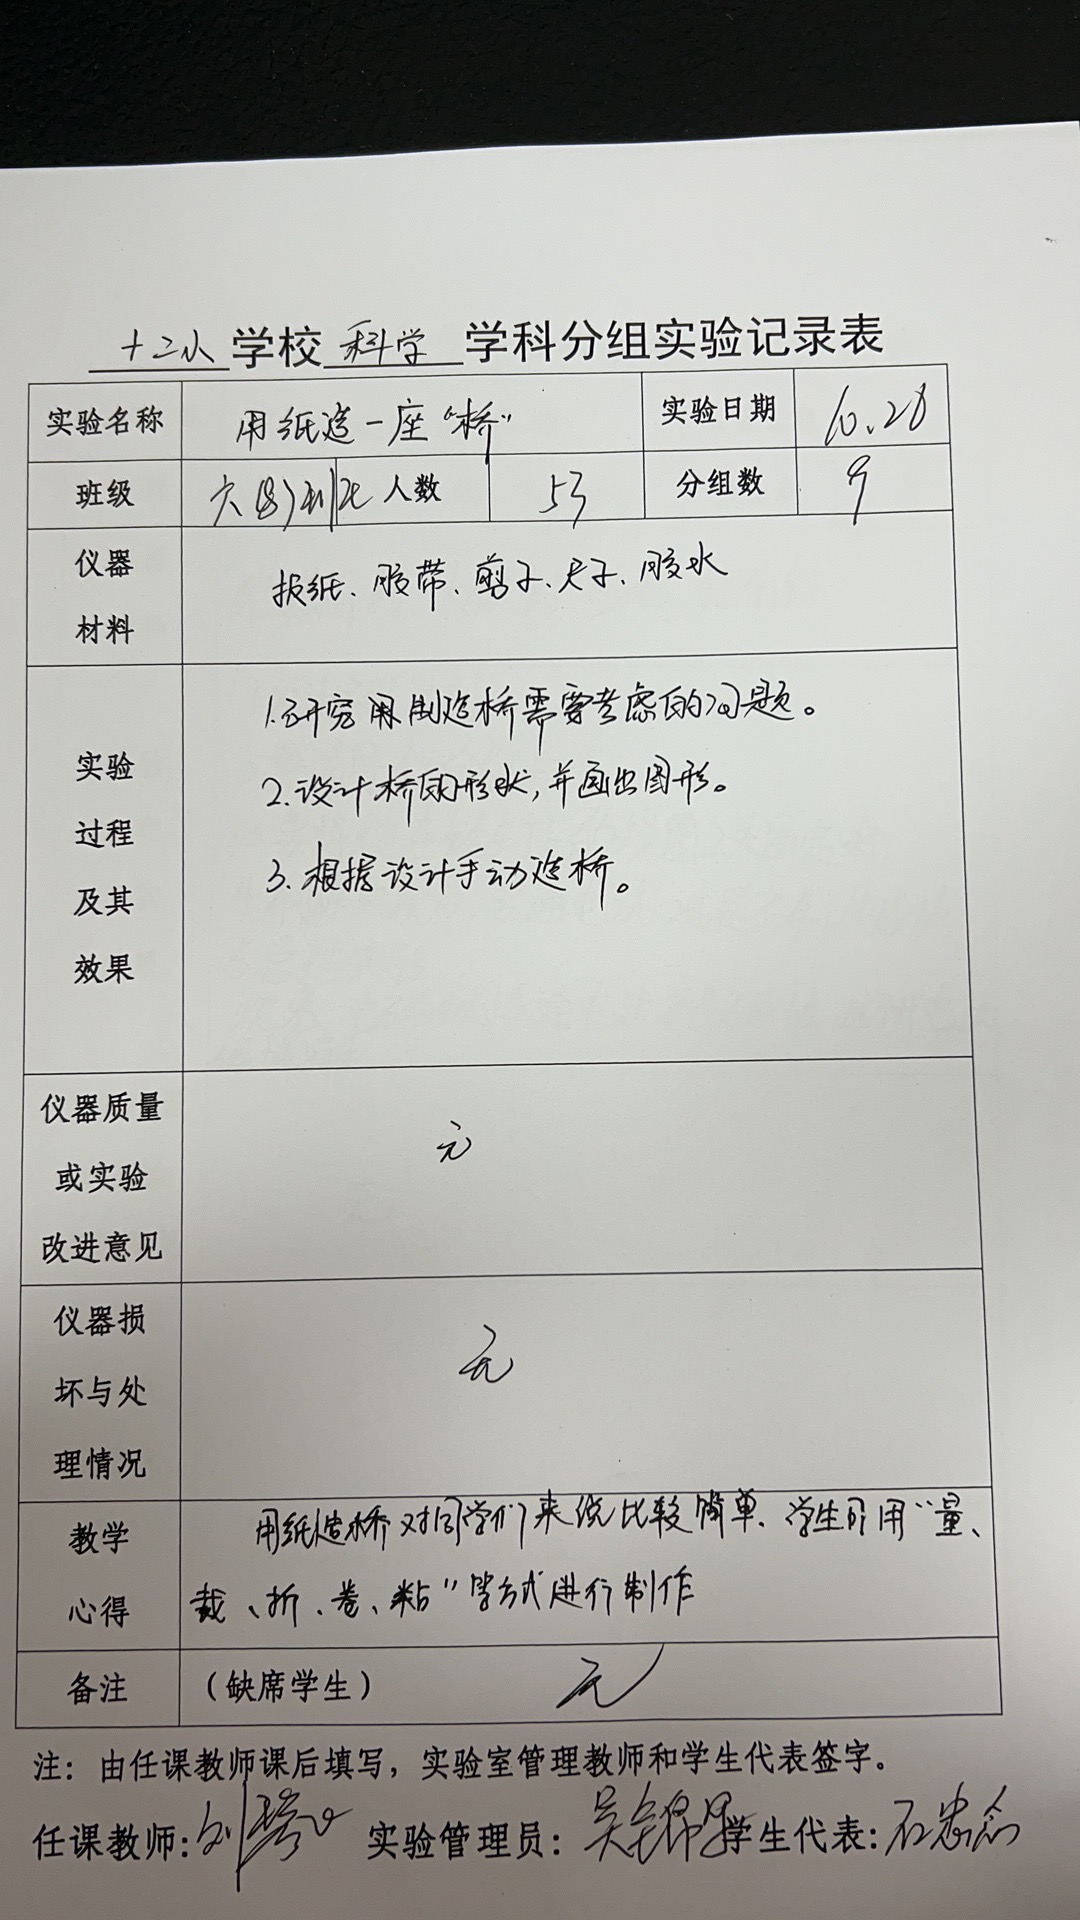 十二小 学校 科学 学科分组实验记录表
实验名称 用纸造一座“桥” 实验日期 10.28
班级 六(8) 人数 53 分组数 9
仪器
材料
报纸、胶带、剪子、尺子、胶水
实验
过程
及其
效果
1.研究用制造桥需要考虑的问题。
2.设计桥的形状,并画出图形。
3.根据设计手动造桥。
仪器质量
或实验
改进意见
无
仪器损
坏与处
理情况
无
教学
心得
用纸造桥对同学们来说比较简单、学生可用“量、
裁、折、卷、粘”等方式进行制作
备注 (缺席学生) 无
注：由任课教师课后填写，实验室管理教师和学生代表签字。
任课教师: 实验管理员: 学生代表: